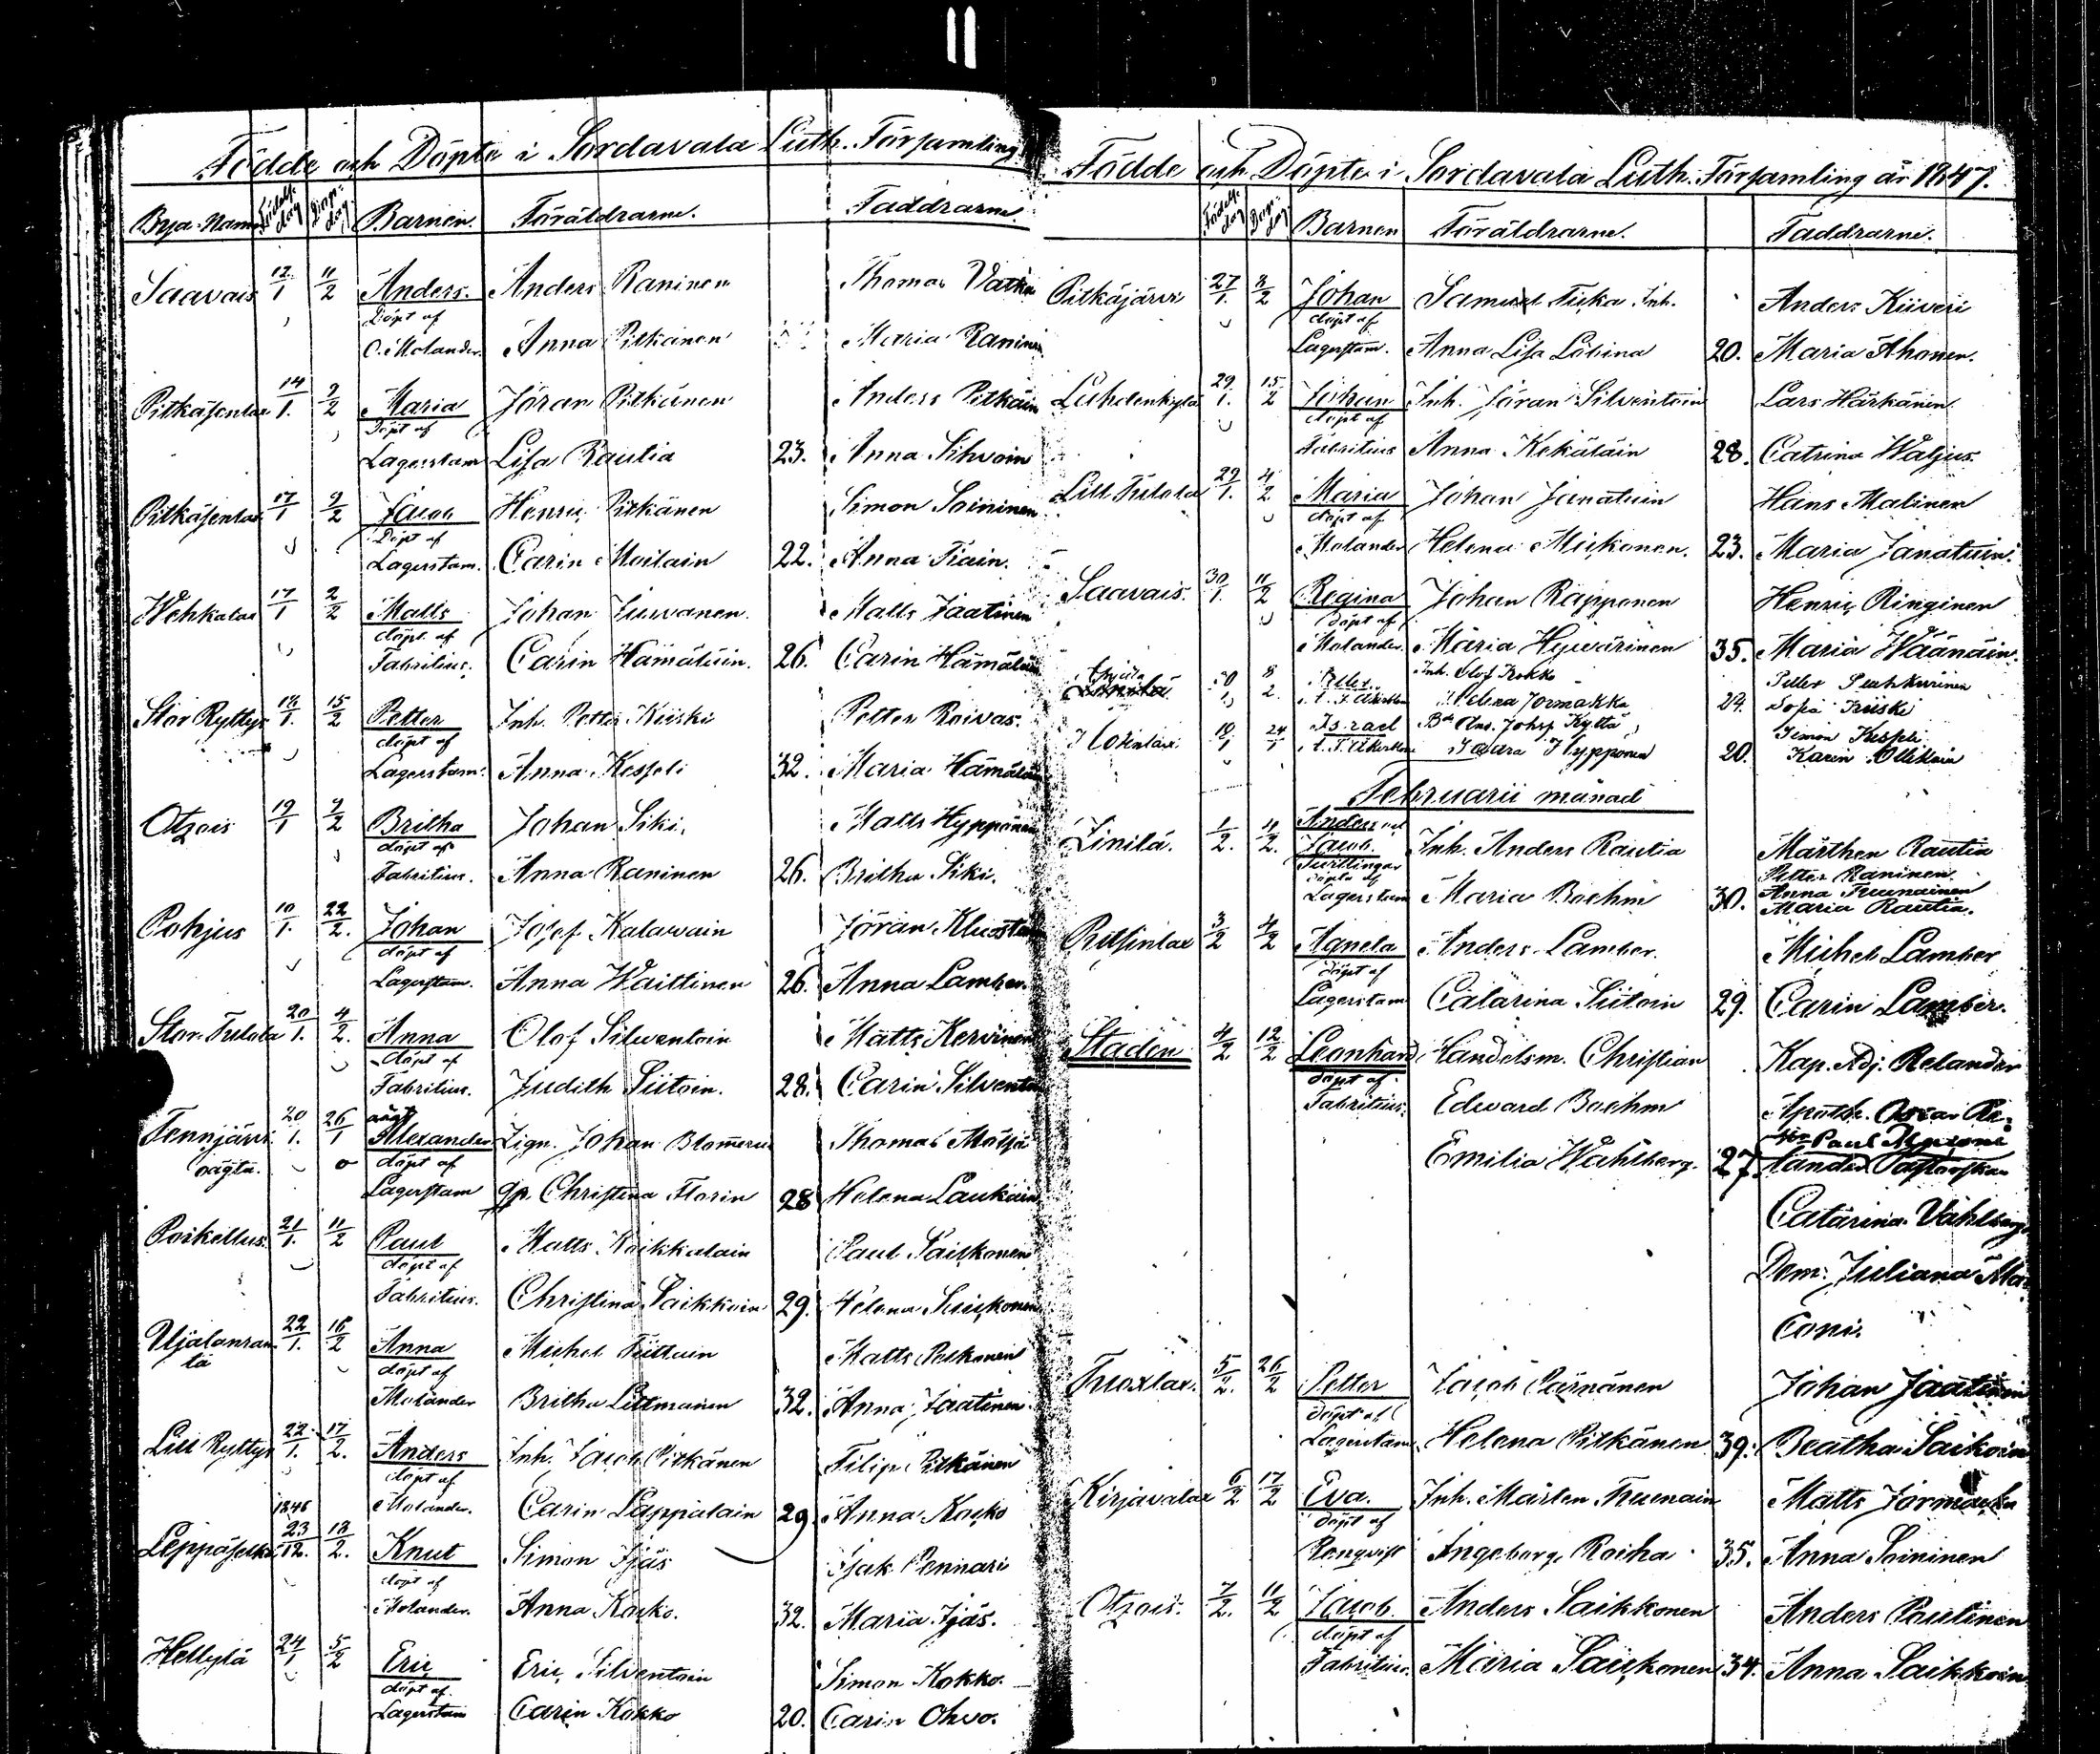 Födde och Döpte i Sordavala Luth. Församling
Bya Namn Födelse dag Döpe-dag Barnen. Föräldrarne. Faddrarne
Saavais 12/1 11/2 Anders. Anders Raninen Thomas
Döpt af
C. Molander. Anna Pitkänen Maria Raninen
14/1. 9/2 Maria Jöran Pitkänen Anders Pitkäin
Döpt af
Lagerstam Lisa Rautia 23. Anna Sihvoin
17/1 9/2 Jacob Henric Pitkänen Simon Soininen
Döpt af
Lagerstam. Carin 22. Anna Tiain.
17/1 2/2 Matts Johan Juvanen. Matts Jaatinen
döpt af
Fabritius. Carin Hämäläin. 26. Carin Hämäläin
Stor Ryttys 18/1. 15/2 Petter Inh. Petter Kiiski Petter Roivas.
döpt af
Lagerstam. Anna Kesseli 32. Maria Hämäläin
Otzois 19/1 9/2 Britha Johan Siki. Matts Hyppönen
döpt af
Fabritius. Anna Raninen 26. Britha Siki.
Pohjus 10/1. 22/2. Johan Josef Kalavain Jöran
döpt af
Lagerstam. Anna Waittinen 26. Anna Lamber
Stor Tulola 20/1. 4/2. Anna Olof Silventoin Matts Kervinen
döpt af
Fabritius. Judith Siitoin. 28. Carin Silventoin
Tennjärvi 20/1. 26/1 Alexander Johan Thomas
oägta. döpt af
Lagerstam Christina Florin 28 Helena Laukain
21/1. 11/2 Paul Matts Koikkalain Paul Saukonen
döpt af
Fabritius. Christina Saikkoin 29. Helena Saukonen
22/1. 16/2 Anna Michel Tiittain Matts Pelkonen
döpt af
Molander Britha Littmanen 32. Anna Jaatinen
Lill Ryttys 22/1. 17/2. Anders Inh. Jacob Pitkänen Filip Pitkänen
döpt af
1846 Molander. Carin Lappalain 29. Anna Kosko
Leppäselkä 23/12. 18/2. Knut Simon Ijäs Isak Pennari
döpt af
Molander. Anna Kosko. 32. Maria Ijäs.
Helylä 24/1 5/2 Eric Eric Silventoin Simon Kokko.
döpt af
Lagerstam Carin Kokko 20. Carin Ohvo.
Födde och Döpte i Sordavala Luth. Församling år 1847.
Födelse dag Döpe-dag Barnen Föräldrarne. Faddrarne.
Pitkäjärvi 27/1. 8/2 Johan Samuel Tiska Inh. Anders Kiiveri
döpt af
Lagerstam. Anna Lisa Löbina 20. Maria Ahonen.
29/1. 15/2 Johan Inh. Jöran Silventoin Lars Härkänen
döpt af
Fabritius Anna Kekäläin 28. Catrina Waljus.
Lill Tulola 29/1. 4/2 Maria Johan Janatuin Hans Malinen
döpt af
Molander Helena Miskonen. 23. Maria Janatuin.
Saavais. 30/1. 11/2 Regina Johan Räpponen Henric Ringinen
döpt af
Molander. Maria Hyvärinen 35. Maria Väänäin.
Inh. Olof Kokko Petter
Helena Jormakka 29. Sofia Kiiski
19/1 24/1 Israel Simon Kesseli
Hypponen 20. Karin Ollikain
Februarii månad
1/2. 11/2. Anders och
Jacob. Inh. Anders Rautia Mårthen Rautia
Tvillingar Petter Raninen
döpte af Anna Tuunainen
Lagerstam Maria Boehm 30. Maria Rautia.
3/2 4/2 Agneta Anders Lamber. Michel Lamber
döpt af
Lagerstam Catarina Siitoin 29. Carin Lamber.
Staden 4/2 12/2 Leonhard Handelsm. Christian Kap. Adj. Relander
döpt af
Fabritius. Edward Boehm Apoth. Oscar Re-
Emilia Wahlberg. 27. lander Pastorskan
Catarina Vahlberg
Dem. Juliana Mar
coni.
Tuoxlax. 5/2. 26/2 Petter Jacob Johan Jaatinen
döpt af
Lagerstam Helena Pitkänen 39. Beatha Saikoin
Kirjavalax 6/2 17/2 Eva. Inh. Mårten Tuunain Matts Jormakka
döpt af
Ronqvist Ingeborg Roiha 35. Anna Soininen
Otzois. 7/2. 11/2 Jacob. Anders Saikkonen Anders Pautinen
döpt af
Fabritius. Maria Saukonen 34. Anna Saikkoin